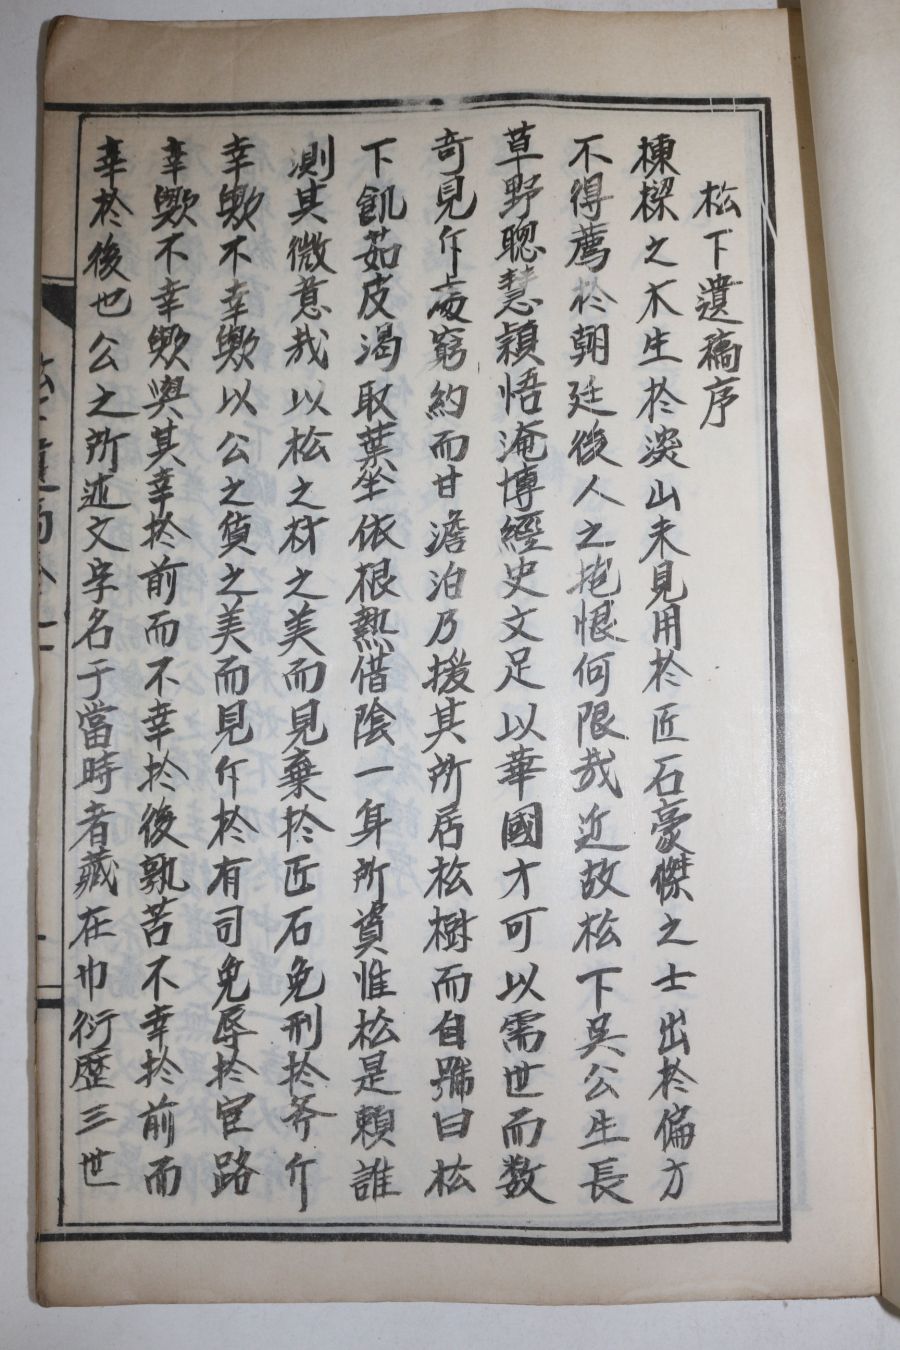 松下遺稿序
棟樑之木生於深山未見用於匠石豪傑之士出於偏方
不得薦於朝廷後人之抱恨何限哉近故松下吳公生長
草野聰慧穎悟淹博經史文足以華國才可以需世而数
奇見斥處窮約而甘澹泊乃援其所居松樹而自號曰松
下飢茹皮渴取葉坐依根熱借陰一身所資惟松是賴誰
測其微意哉以松之材之美而見棄於匠石免刑於斧斤
幸歟不幸歟以公之質之美而見斥於有司免辱於宦路
幸歟不幸歟與其幸於前而不幸於後孰若不幸於前而
幸於後也公之所述文字名于當時者藏在巾衍歷三世
松下遺稿卷之一